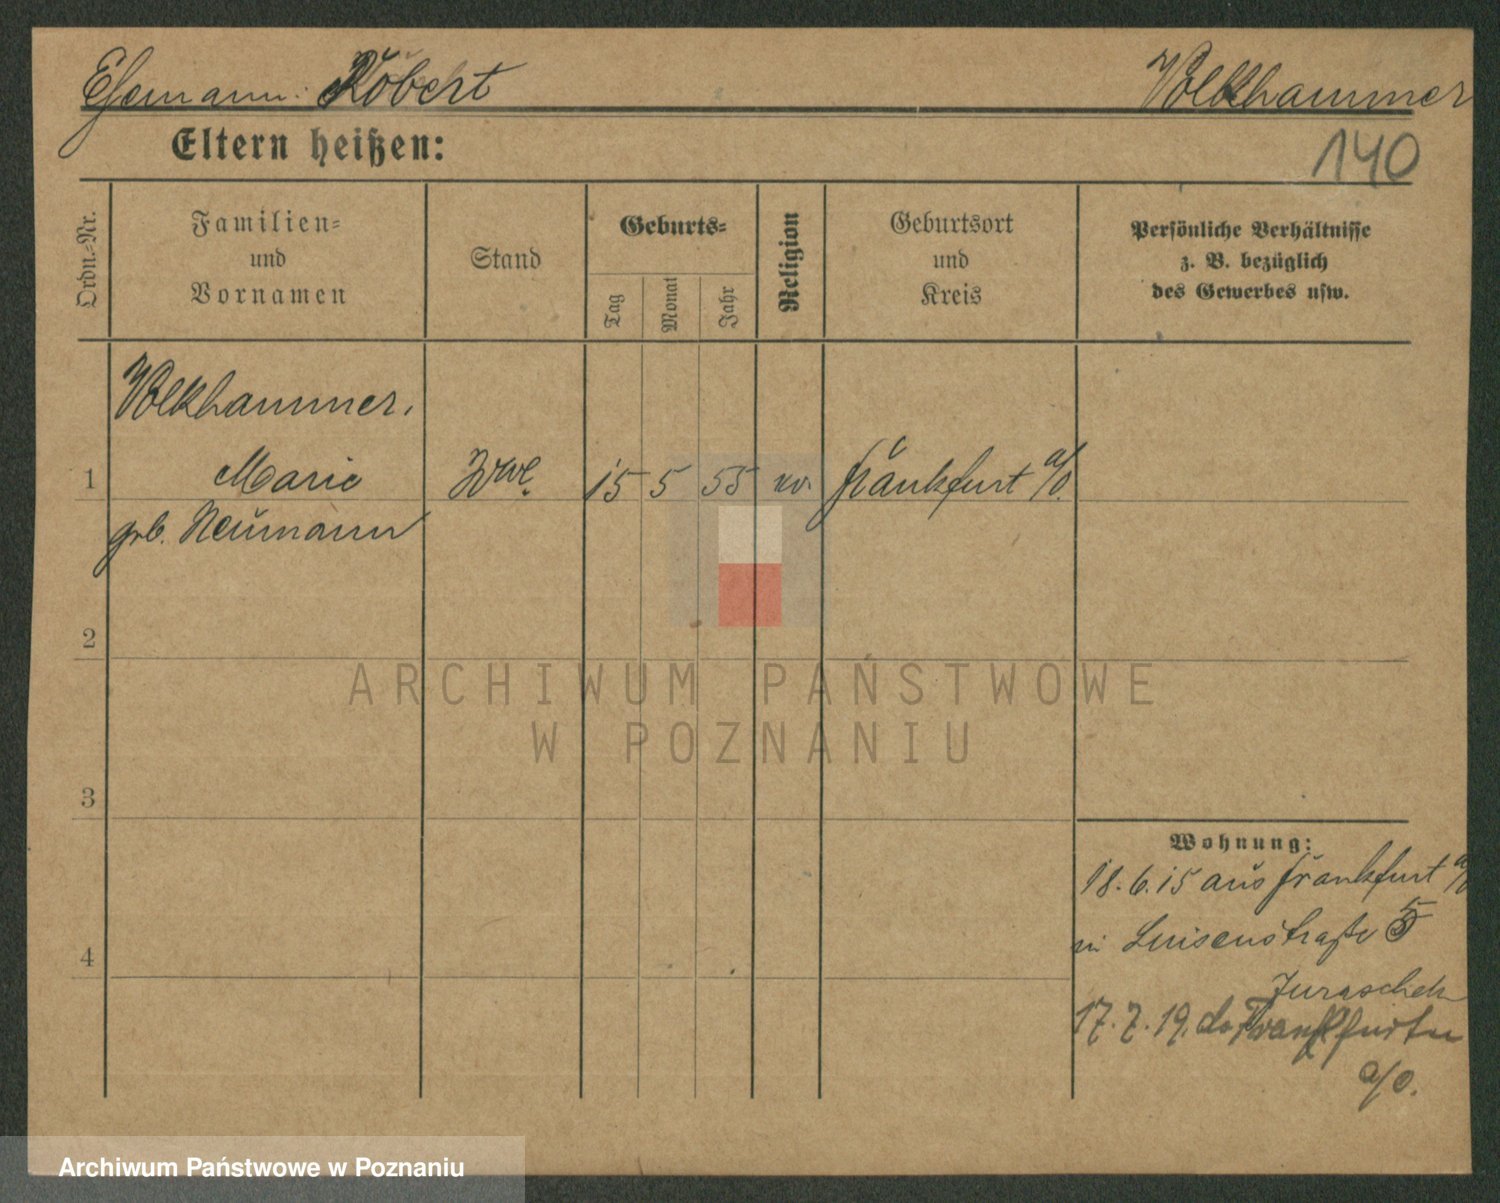 Ehemann: Robert Volkhammer
140
Eltern heißen:
Ordn.-Nr.
Familien-
und
Vornamen
Stand
Geburts-
Tag
Monat
Jahr
Religion
Geburtsort
und
Kreis
Persönliche Verhältnisse
z. B. bezüglich
des Gewerbes usw.
Volkhammer,
1 Marie Wwe. 15 5 55 ev. Frankfurt a/O.
geb. Neumann
2
3
4
ARCHIWUM PAŃSTWOWE
W POZNANIU
Wohnung:
18.6.15 aus Frankfurt a/O
Luisenstraße 5
Juraschek
17.7.19. do Frankfurtu
a/O.
Archiwum Państwowe w Poznaniu